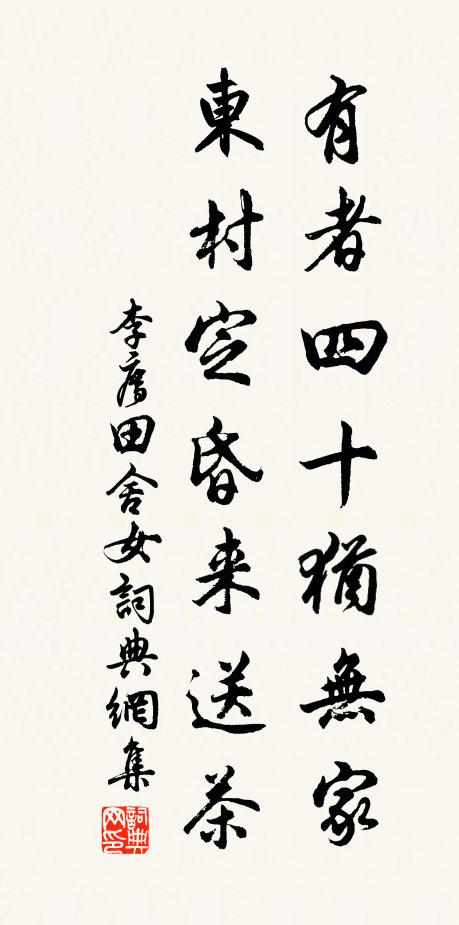 有者四十猶無家
東村定昏来送茶
李廌田舍女詞典網集
詞典网印